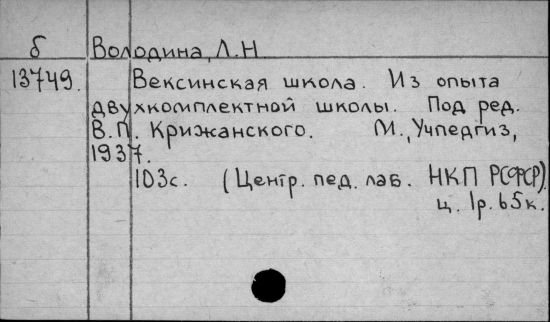 б Володина, Л.Н
13749. Вексинская школа. Из опыта
двухкомплектной школы. Под ред.
В.П. Крижанского. М., Учпедгиз,
1937.
103с. (Центр. пед. лаб. НКП РСФСР).
ц. 1р. 65к.